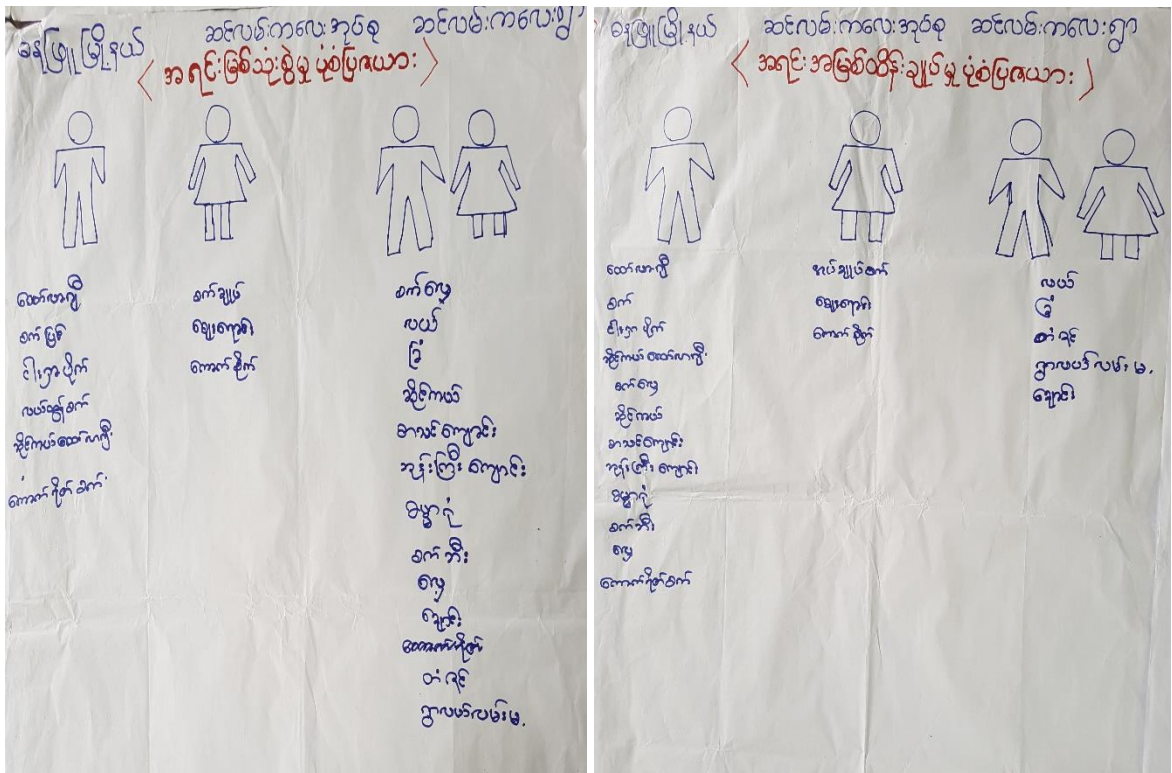 ဓနုဖြူမြို့နယ် ဆင်လမ်းကလေးအုပ်စု ဆင်လမ်းကလေးရွာ
အရင်းမြစ်သုံးစွဲမှု ပုံစံပြဇယား
ထော်လာဂျီ
စက်မြစ်
ငါးရှာပိုက်
လယ်ထွန်စက်
ဆိုင်ကယ်ထော်လာဂျီ
ကောက်ရိတ်စက်
စက်ချုပ်
ဈေးရောင်း
ကောက်စိုက်
စက်လှေ
လယ်
ခြံ
ဆိုင်ကယ်
စာသင်ကျောင်း
ဘုန်းကြီးကျောင်း
ဓမ္မာရုံ
စက်ဘီး
လှေ
ချောင်း
ကောက်ရိတ်
တံငါ
ရွာလယ်လမ်းမ
ဓနုဖြူမြို့နယ် ဆင်လမ်းကလေးအုပ်စု ဆင်လမ်းကလေးရွာ
အရင်းအမြစ်ထိန်းချုပ်မှု ပုံစံပြဇယား
ထော်လာဂျီ
စက်
ငါးရှာပိုက်
ဆိုင်ကယ်ထော်လာဂျီ
စက်လှေ
ဆိုင်ကယ်
စာသင်ကျောင်း
ဘုန်းကြီးကျောင်း
ဓမ္မာရုံ
စက်ဘီး
လှေ
ကောက်ရိတ်စက်
အပ်ချုပ်စက်
ဈေးရောင်း
ကောက်စိုက်
လယ်
ခြံ
ရွာလယ်လမ်းမ
ချောင်း